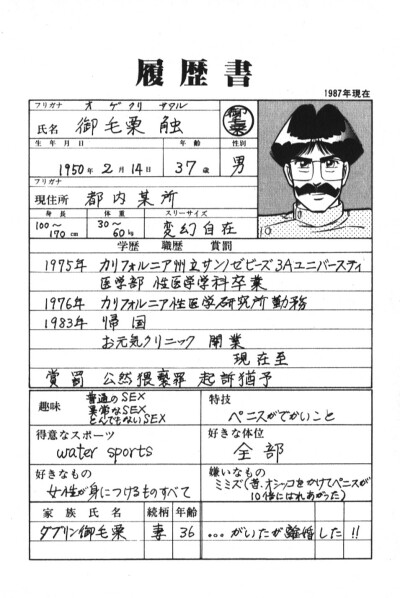 履歴書
1987年現在
フリガナ オゲクリ サワル
氏名 御毛栗 触
生年月日 年齢 性別
1950年2月14日 37歳 男
フリガナ
現住所 都内某所
身長 体重 スリーサイズ
100〜170cm 30〜60kg 変幻自在
学歴 職歴 賞罰
1975年 カリフォルニア州立サンノゼビーズ3Aユニバースティ
医学部 性医学学科卒業
1976年 カリフォルニア性医学研究所勤務
1983年 帰国
お元気クリニック 開業
現在至
賞罰 公然猥褻罪 起訴猶予
趣味 普通のSEX
異常なSEX
とんでもないSEX
特技
ペニスがでかいこと
得意なスポーツ
water sports
好きな体位
全部
好きなもの
女性が身につけるものすべて
嫌いなもの
ミミズ(昔、オシッコをかけてペニスが
10倍にはれあがった)
家族氏名 続柄 年齢
ダブリン御毛栗 妻 36 …がいたが離婚した!!